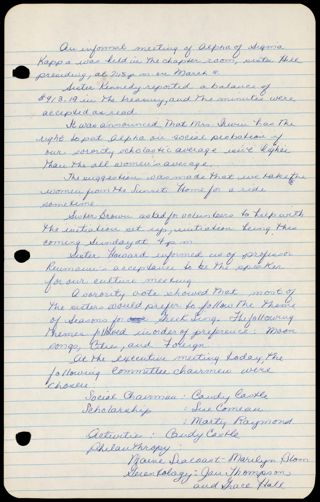 An informal meeting of Alpha of Sigma
Kappa was held in the chapter room, sister Hall
presiding, at 7:05 p.m. on March 8.
Sister Kennedy reported a balance of
$913.19 in the treasury, and the minutes were
accepted as read.
It was announced that Mrs. Irwin has the
right to put Alpha on social probation if
our sorority scholastic average isn't higher
than the all women's average.
The suggestion was made that we take the
women from the Sunset Home for a ride
sometime.
Sister Brown asked for volunteers to help with
the initiation set up, initiation being this
coming Sunday at 4 pm
Sister Howard informed us of professor
acceptance to be the speaker
for our culture meeting.
A sorority vote showed that most of
the sisters would prefer to follow the theme
of Seasons for Greek Sing. The following
themes placed in order of preference: Moon
songs, Cities, and Foreign.
At the executive meeting today, the
following committee chairmen were
chosen:
Social Chairman : Candy Castle
Scholarship : Sue Comeau
: Marty Raymond
Activities : Candy Castle
Philanthropy :
Maine Seacoast: Marilyn Blom
Gerontology: Jan Thompson
and Grace Hall